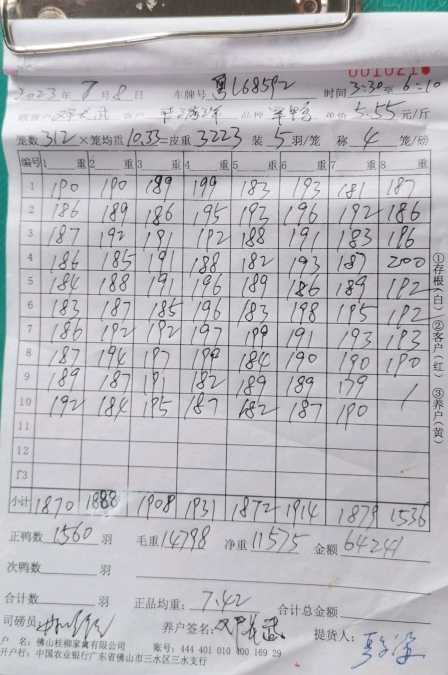 001021
2023年7月8日 车牌号 粤L68592 时间 3:30至6:10
5.55元/斤
笼数312×笼均重10.33=皮重3223 装5羽/笼 称4笼/磅
编号 1 重 2 重 3 重 4 重 5 重 6 重 7 重 8 重
1 190 190 189 199 183 193 181 187
2 186 189 186 195 193 196 192 186
3 187 192 191 192 188 191 183 196
4 186 185 191 188 182 193 187 200
5 184 188 191 196 189 186 189 192
6 183 187 185 196 183 198 195 192
7 186 192 192 197 199 191 193 193
8 187 194 197 199 184 190 190 190
9 189 187 191 182 189 189 179 /
10 192 184 195 187 182 187 190
11
12
13
小计 1870 1888 1908 1931 1872 1914 1879 1536
①存根(白) ②客户(红) ③养户(黄)
正鸭数1560羽 毛重14798 净重11575 金额64241
次鸭数 羽
合计数 羽 正品均重:7.42 合计总金额
司磅员 养户签名: 提货人:
户 名:佛山桂柳家禽有限公司 账号:444 401 010 400 169 29
开户行:中国农业银行广东省佛山市三水区三水支行